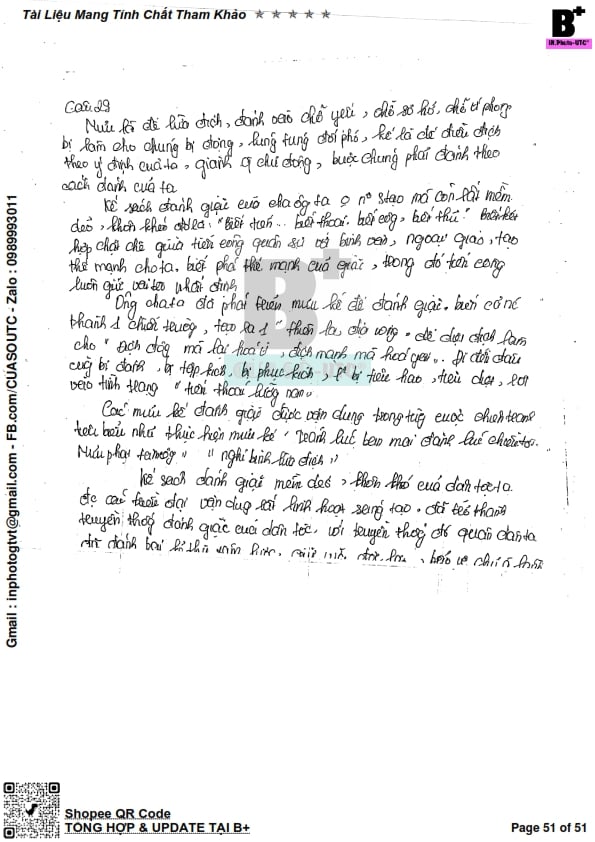 Tài Liệu Mang Tính Chất Tham Khảo ★ ★ ★ ★ ★
B+
IN.Photo-UTC
Câu 29
Mưu là để lừa địch, đánh vào chỗ yếu, chỗ sơ hở, chỗ ít phòng
bị làm cho chúng bị động, lúng túng đối phó, kế là để điều địch
theo ý định của ta, giành q chủ động, buộc chúng phải đánh theo
cách đánh của ta
Kế sách đánh giặc của cha ông ta ko n~ stạo mà còn rất mềm
dẻo, khôn khéo đó là: "biết tiến.. biết thoái. biết công, biết thủ" Biết kết
hợp chặt chẽ giữa tiến công quân sự với binh vận, ngoại giao, tạo
thế mạnh cho ta. biết phá thế mạnh của giặc, trong đó tiến công
luôn giữ vai trò nhất định
Ông cha ta đã phát triển mưu kế để đánh giặc. biến cả nc
thành 1 chiến trường, tạo ra 1 "thiên la địa võng". để diệt địch làm
cho "địch đông mà lại hoá ít, địch mạnh mà hoá yếu". Đi đến đâu
cũng bị đánh, bị tập kích, bị phục kích, bị tiêu hao, tiêu diệt, rơi
vào tình trạng "tiến thoái lưỡng nan".
Các mưu kế đánh giặc được vận dụng trong từng cuộc chiến tranh
tiêu biểu như thực hiện mưu kế "tránh lúc ban mai đánh lúc chiều tà.
"nghi binh lừa địch"
Kế sách đánh giặc mềm dẻo, khôn khéo của dân tộc ta
đc các triều đại vận dụng rất linh hoạt sáng tạo. đã trở thành
truyền thống đánh giặc của dân tộc. với truyền thống đó quân dân ta
đã đánh bại kẻ thù
Gmail : inphotogtvt@gmail.com - FB.com/CUASOUTC - Zalo : 0989993011
Shopee QR Code
TỔNG HỢP & UPDATE TẠI B+
Page 51 of 51